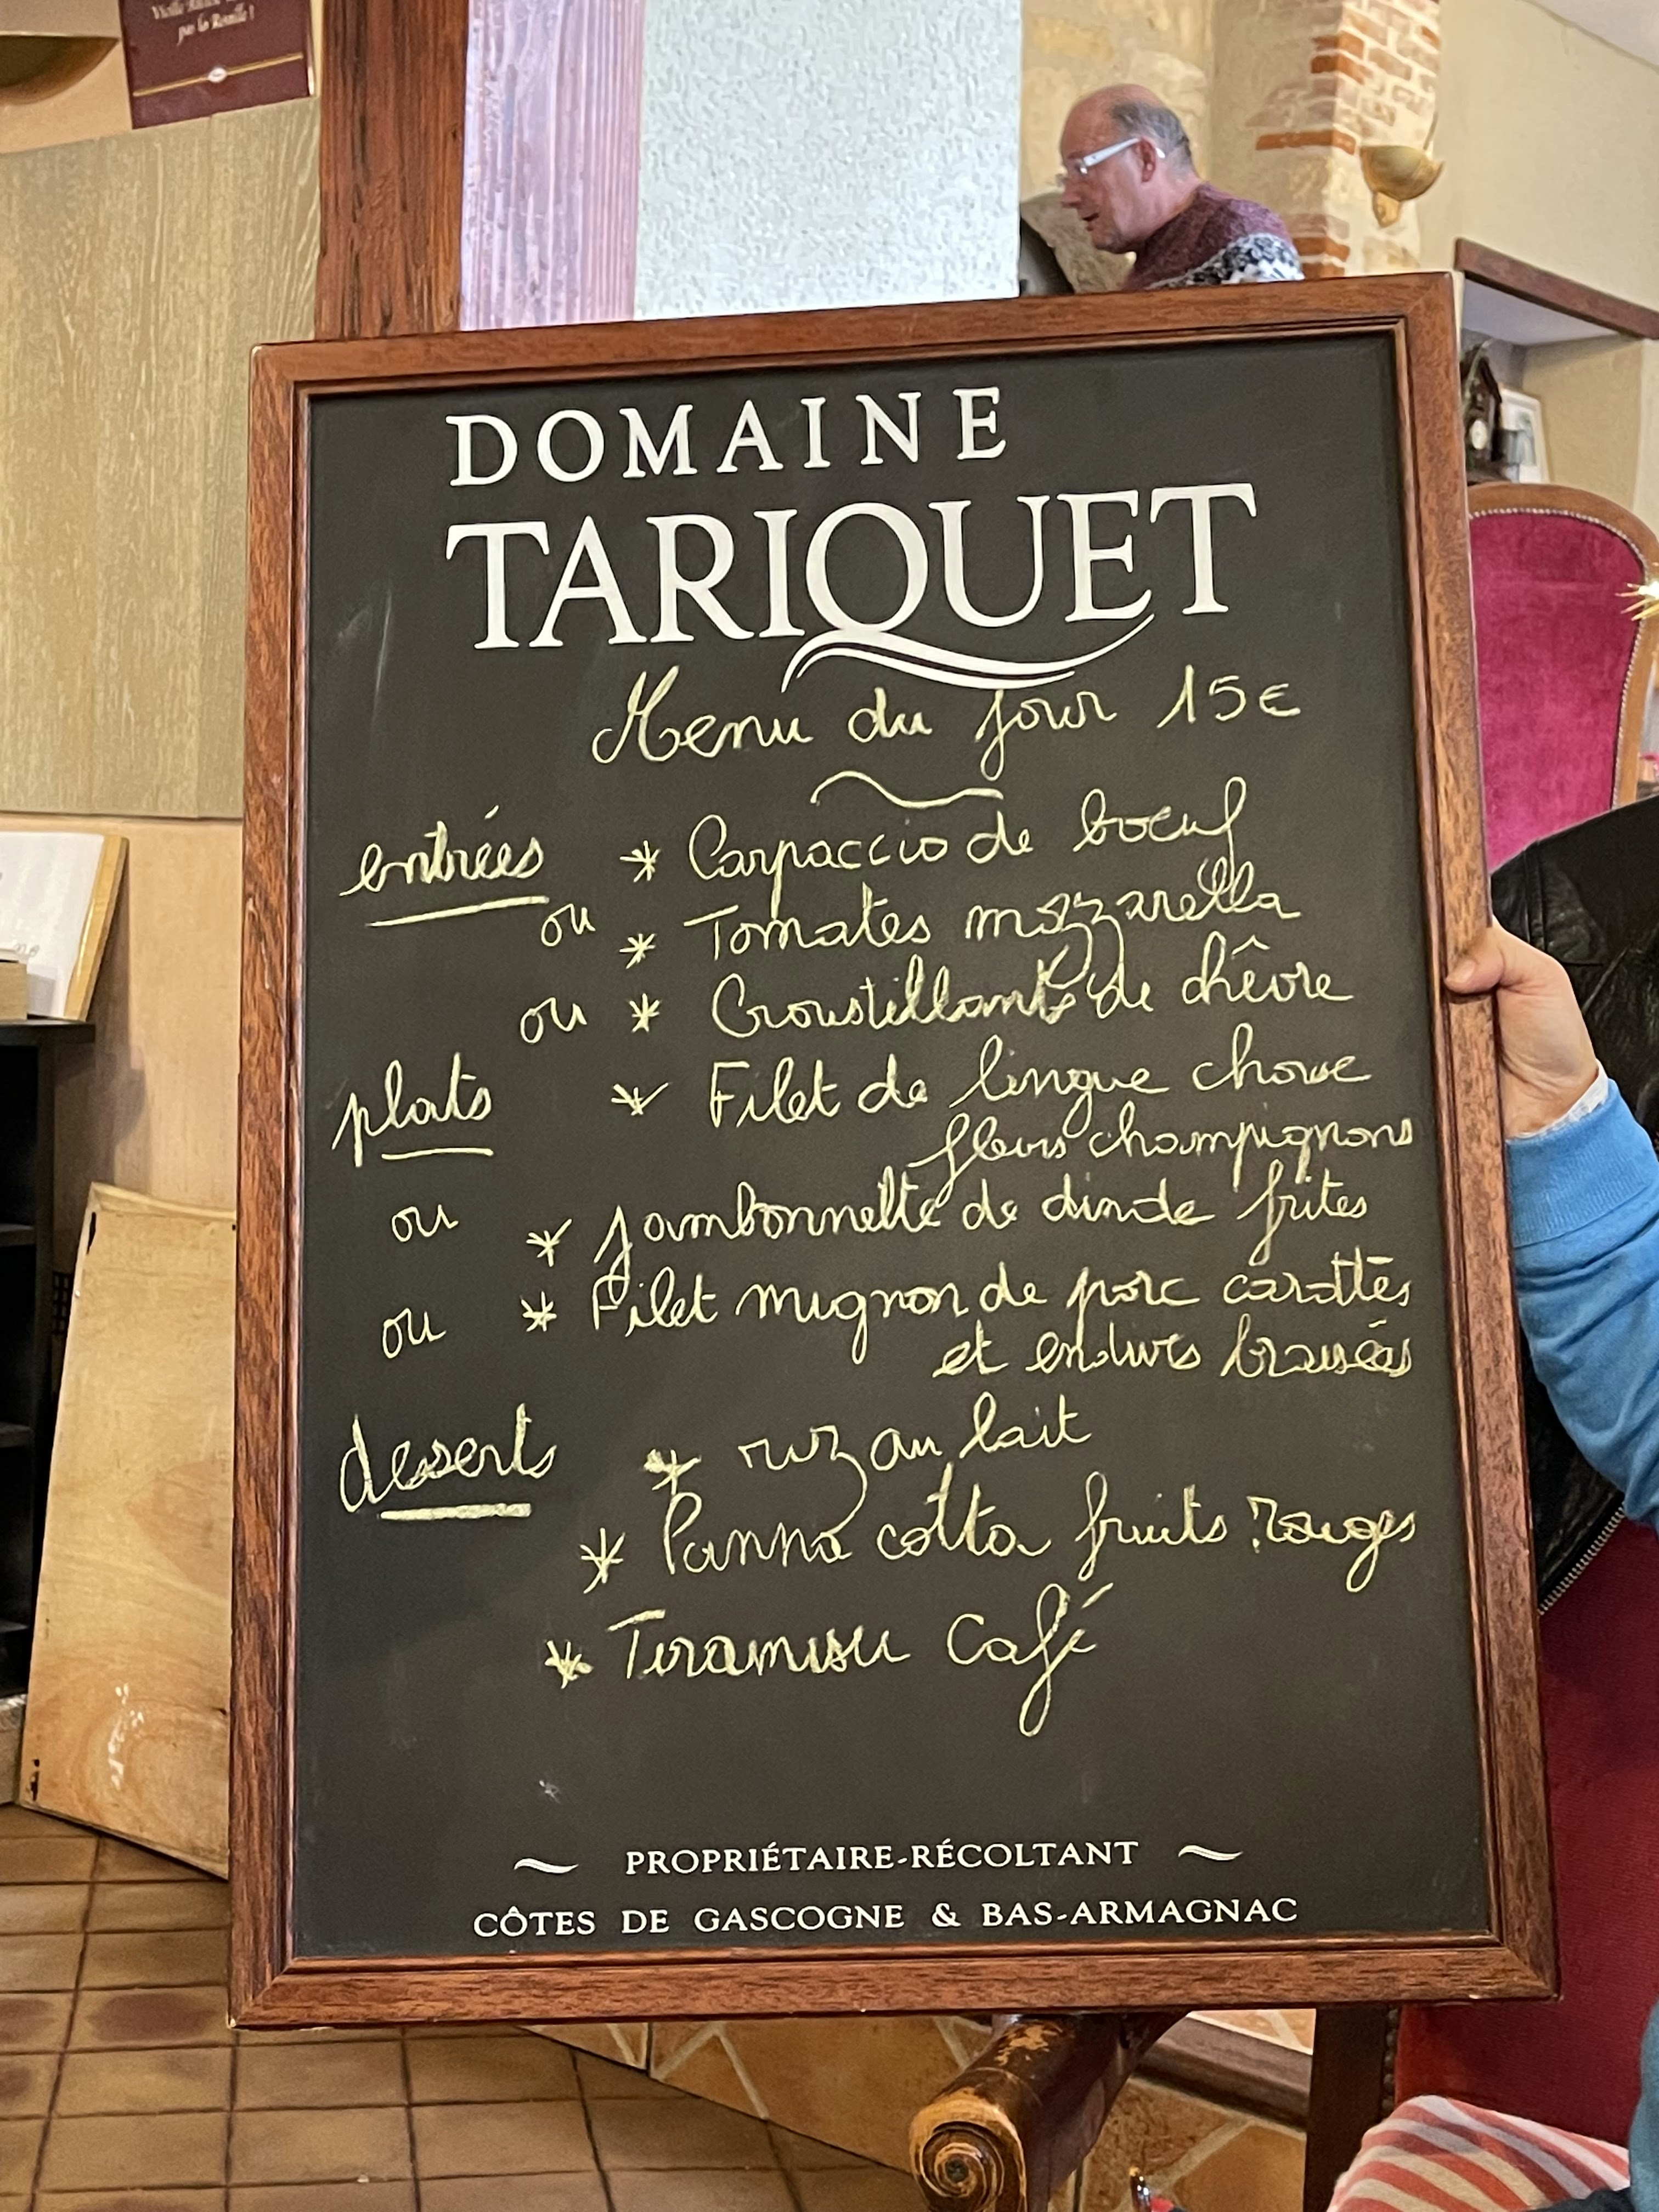 Vieille Réserve
pas la Famille !
DOMAINE
TARIQUET
Menu du jour 15€
entrées * Carpaccio de boeuf
ou * Tomates mozzarella
ou * Croustillants de chèvre
plats * Filet de lingue choux
fleurs champignons
ou * Jambonnette de dinde frites
ou * Filet mignon de porc carottes
et endives braisées
desserts * riz au lait
* Panna cotta fruits rouges
* Tiramisu Café
PROPRIÉTAIRE-RÉCOLTANT
CÔTES DE GASCOGNE & BAS-ARMAGNAC